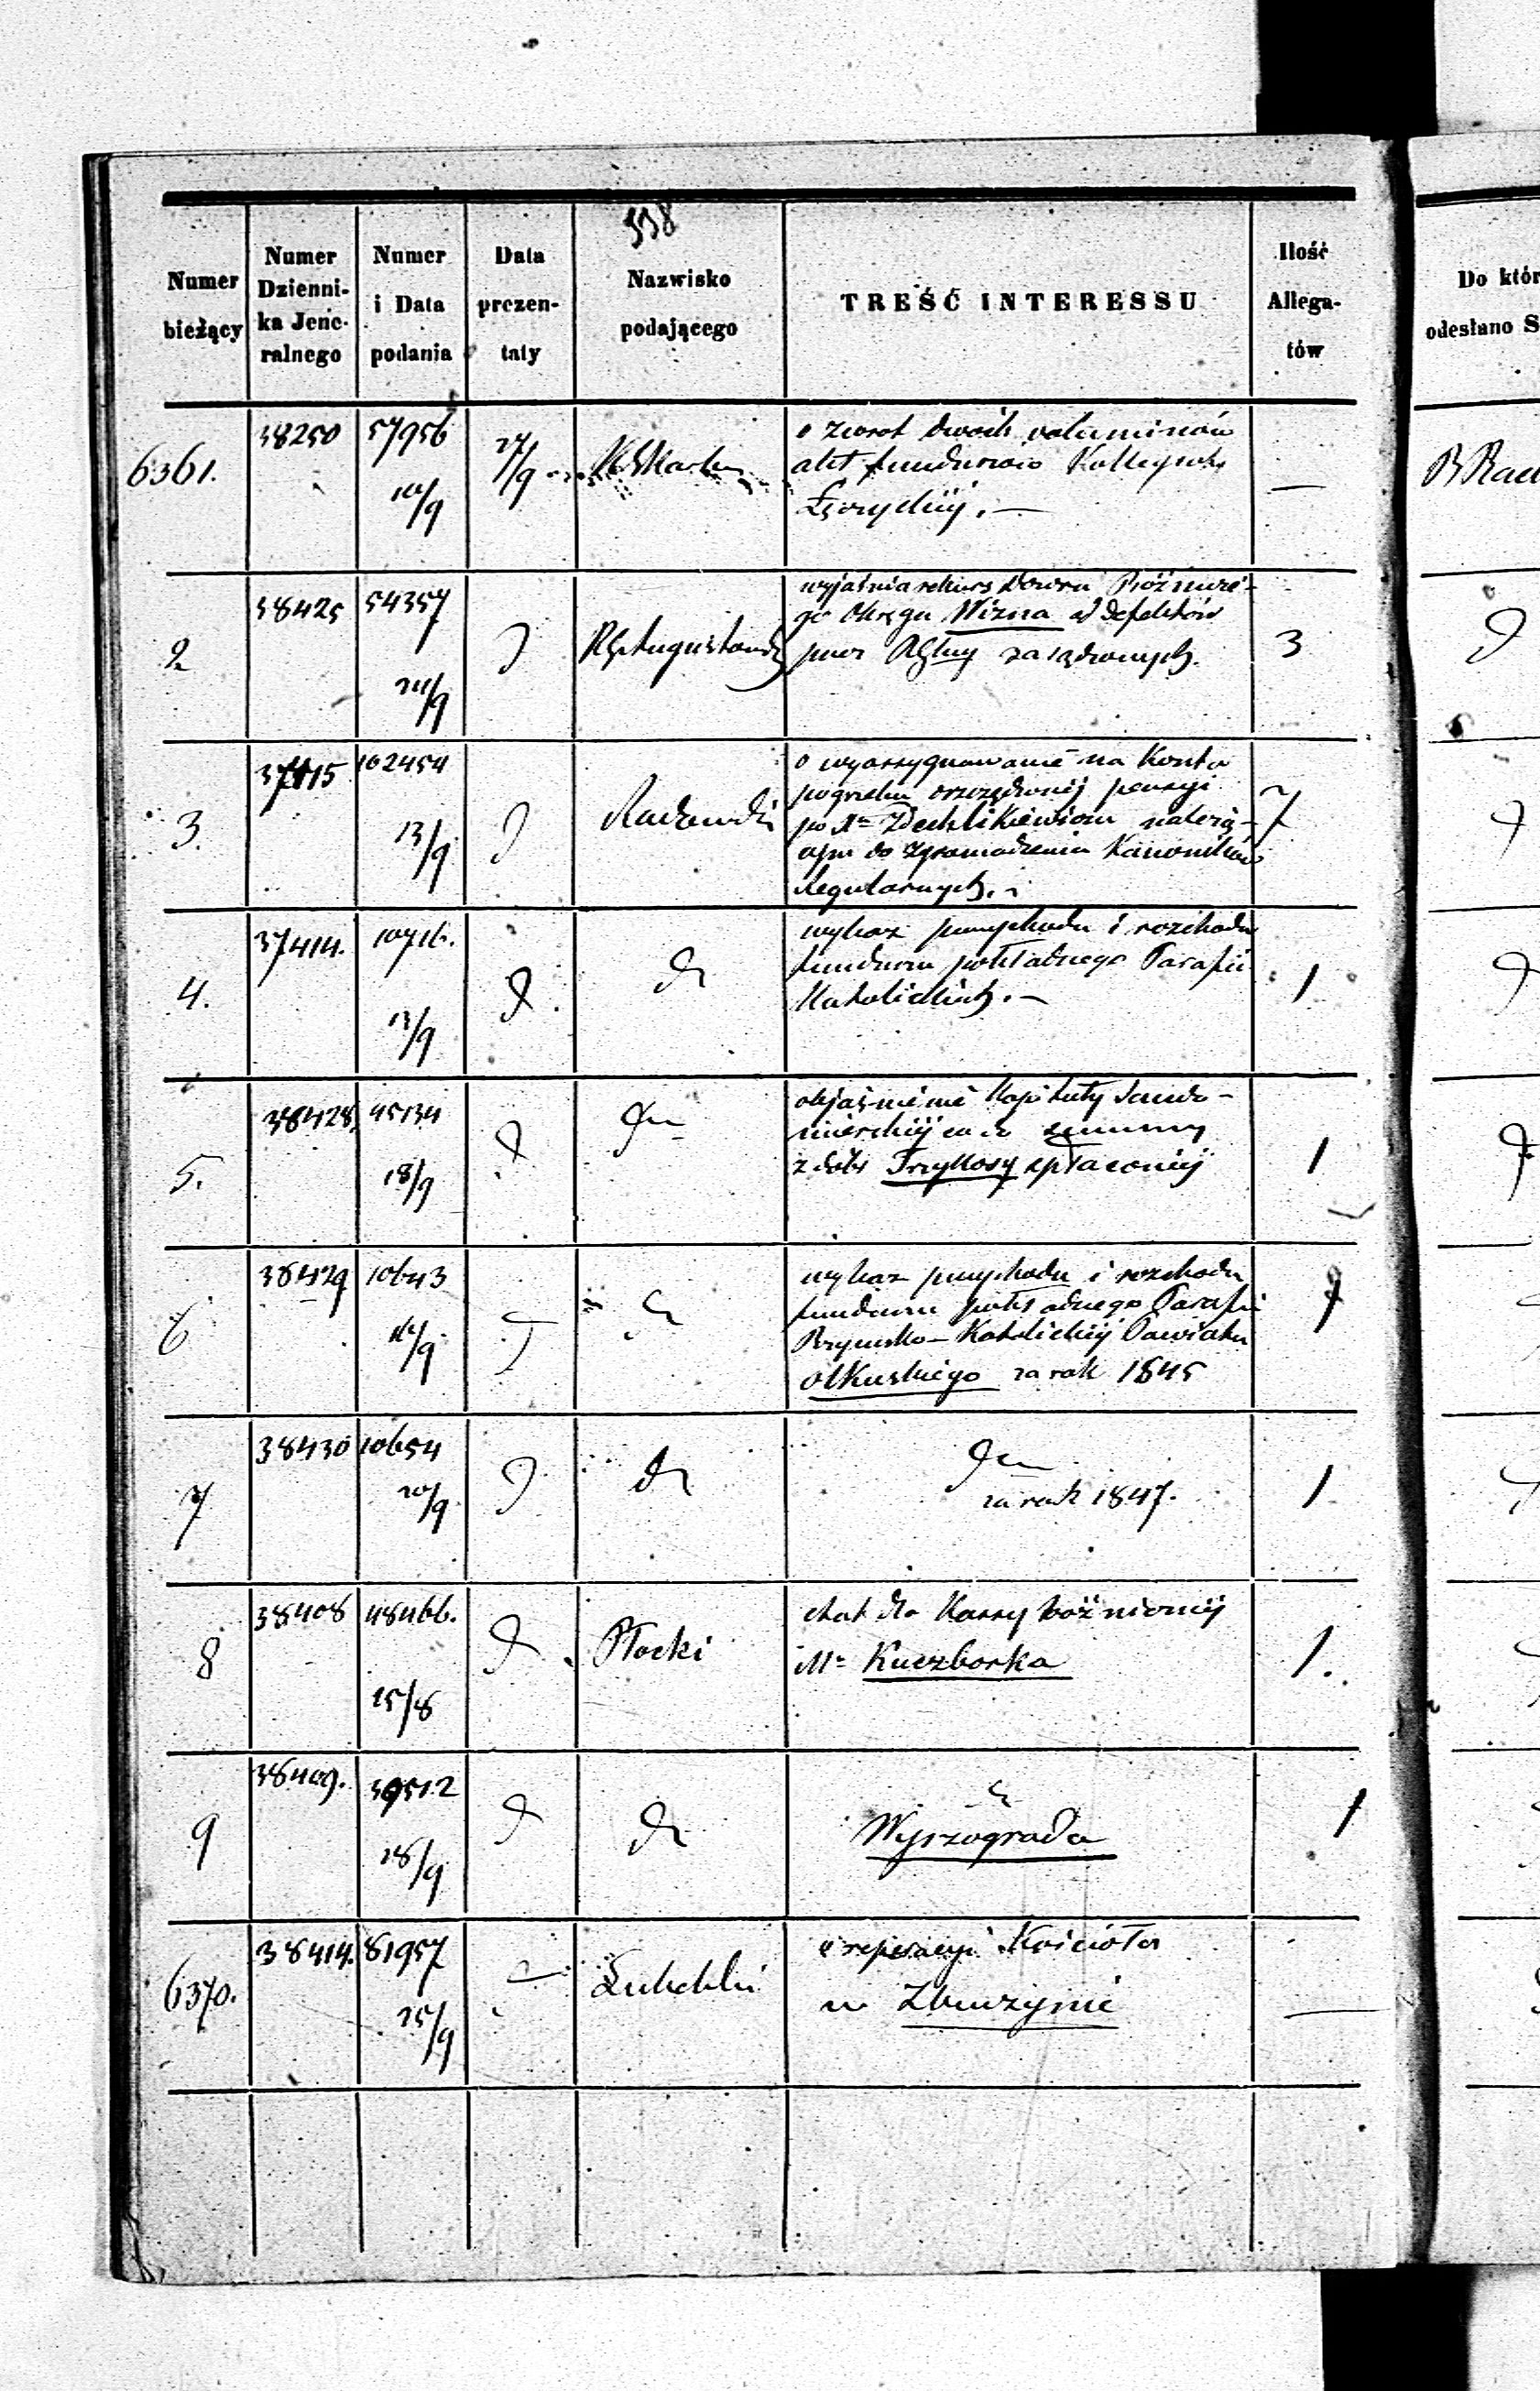 338
Numer bieżący
Numer Dzienni-ka Jene-ralnego
Numer i Data podania
Data prezen-taty
Nazwisko podającego
TREŚĆ INTERESSU
Ilość Allega-tów
Do któr
odesłano S
6361.
38250
57956
27/9
o zwrot dwóch voluminów
akt funduszowo Kollegiaty
Łęczyckiej. —
—
2
38425
54357
wyjaśnia rekurs Dozoru Bóżnicze-
go Okręgu Wizna od defektów
przez zasądzonych.
3
3.
102454
13/9
Radomski
o wyassygnowanie na Koszta
pogrzebu oszczędzonej pensyi
po Xu należą-
cym do Zgromadzenia Kanoników
Regularnych. -
7
4.
37414.
13/9
wykaz przychodu i rozchodu
funduszu pokładnego Parafii
Katolickich. —
1
5.
38428.
45134
18/9
objaśnienie Kapituły Sando-
mierskiej co do summy
z dóbr Trzykosy spłaconej
1
6
38429
10643
wykaz przychodu i rozchodu
funduszu pokładnego Parafii
Rzymsko-Katolickiej Powiatu
Olkuskiego za rok 1845
7
38430
10654
20/9
za rok 1847.
1
8
38408
48466.
15/8
Płocki
etat dla Kassy bóżnicznej
Ma Kuczborka
1.
9
38409.
39512
18/9
Wyszogroda
1
6370.
38414.
81957
25/9
Lubelski
o reperacyi Kościoła
w Zbuczynie
—